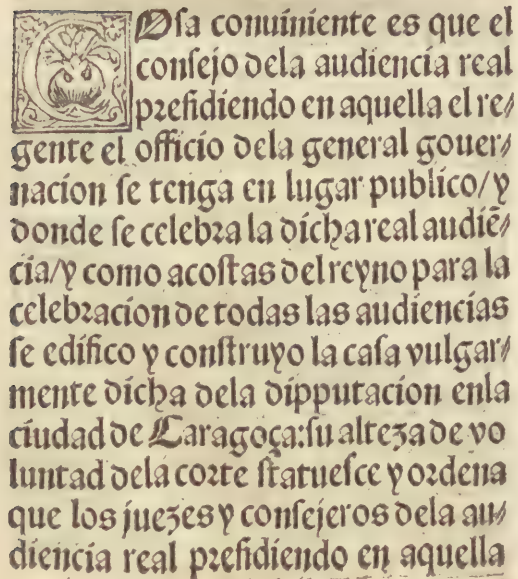 COsa conuiniente es que el
consejo dela audiencia real
presidiendo en aquella el re⸗
gente el officio dela general gouer⸗
nacion se tenga en lugar publico/y
donde se celebra la dicha real audiē⸗
cia/y como acostas del reyno para la
celebracion de todas las audiencias
se edifico y construyo la casa vulgar⸗
mente dicha dela dipputacion enla
ciudad de Caragoça:su alteza de vo
luntad dela corte statuesce y ordena
que los juezes y consejeros dela au⸗
diencia real presidiendo en aquella